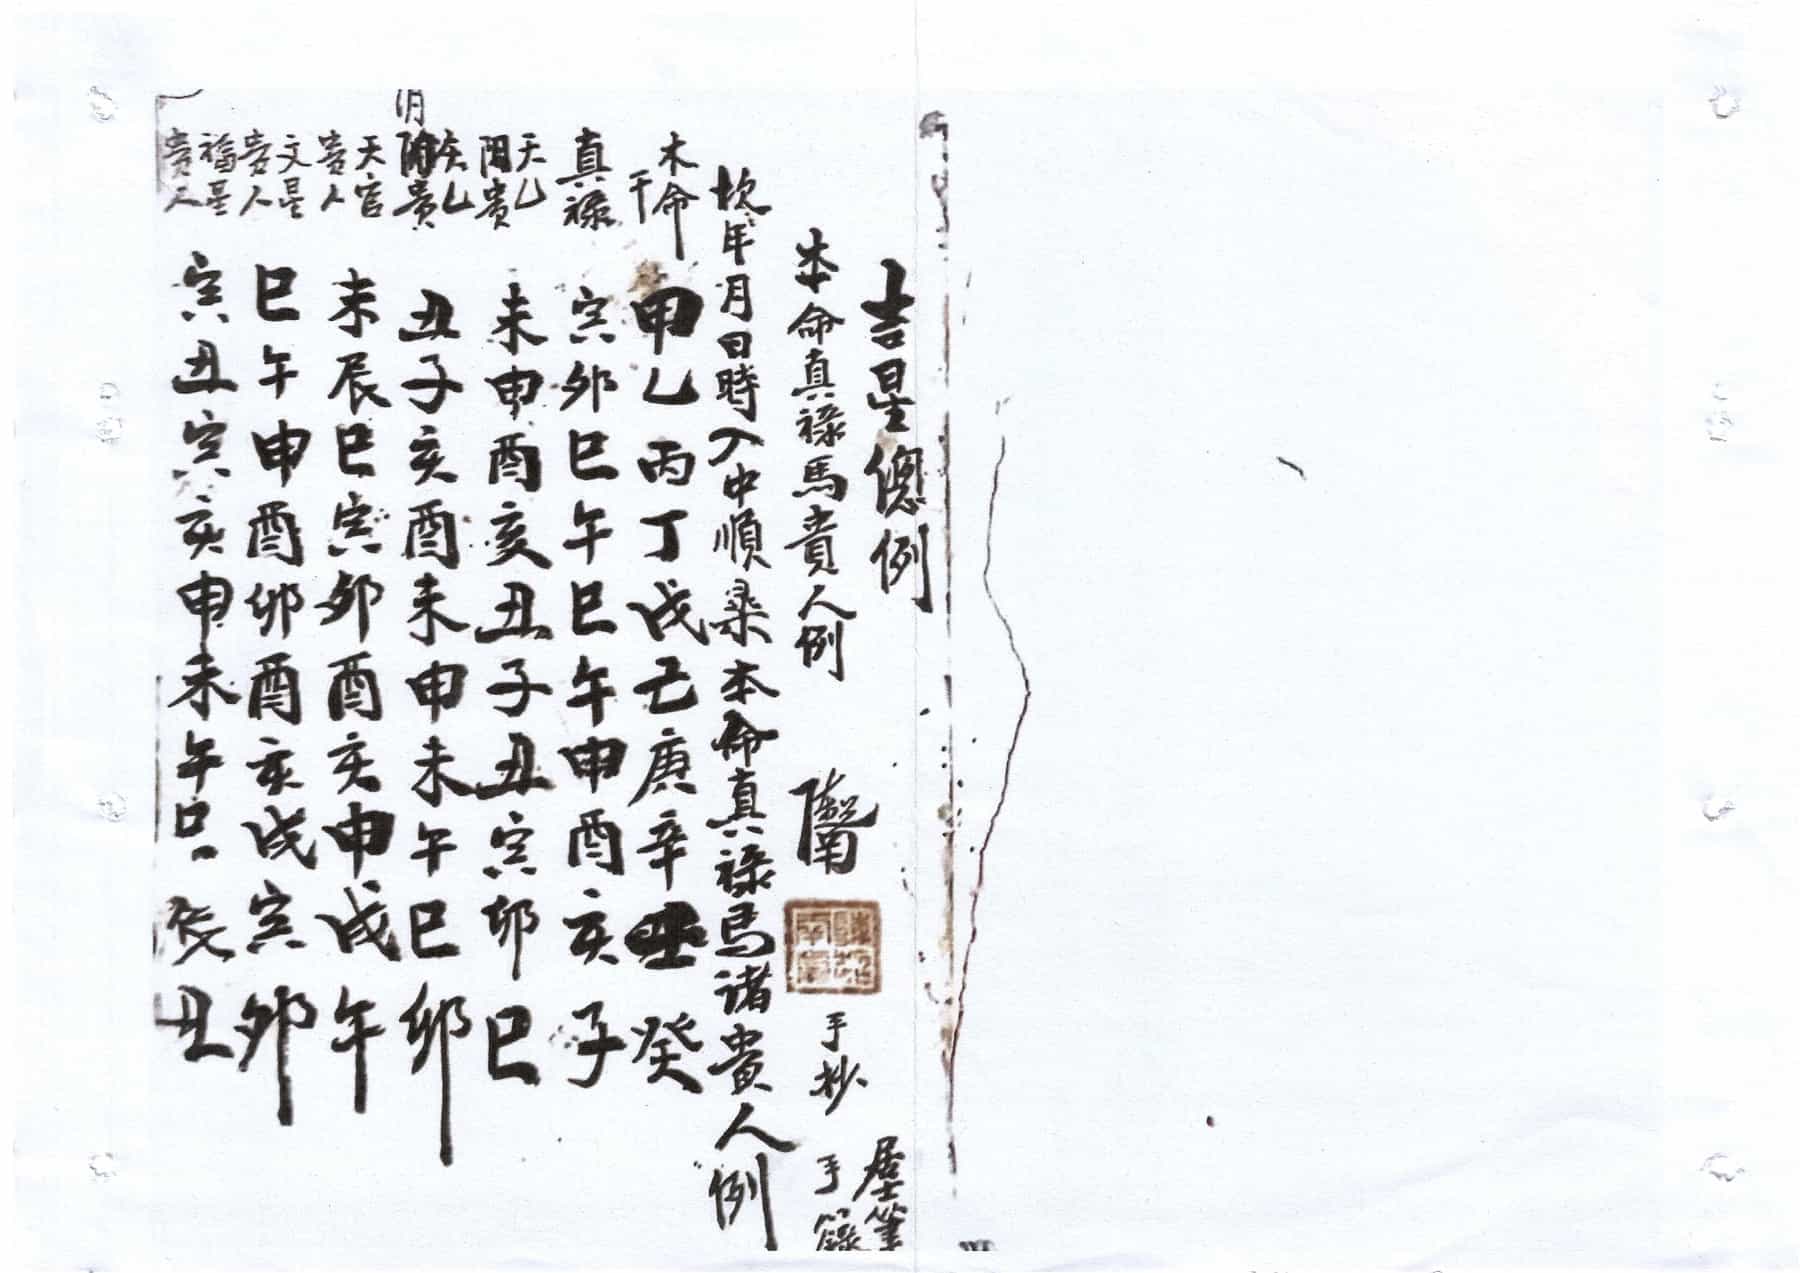 吉星傯例
本命真祿馬貴人例
手抄
手錄
年月日時入中順桑本命真祿馬诸貴人例
木命干
甲乙丙丁戊己庚辛壬癸
真祿
寅卯巳午巳午申酉亥子
天乙阳貴
未申酉亥丑子丑寅卯巳
天乙阴貴
丑子亥酉未申未午巳卯
天官貴人
未辰巳寅卯酉亥申戌午
文星貴人
巳午申酉卯酉亥戌寅卯
福星貴人
寅丑寅亥申未午巳辰丑